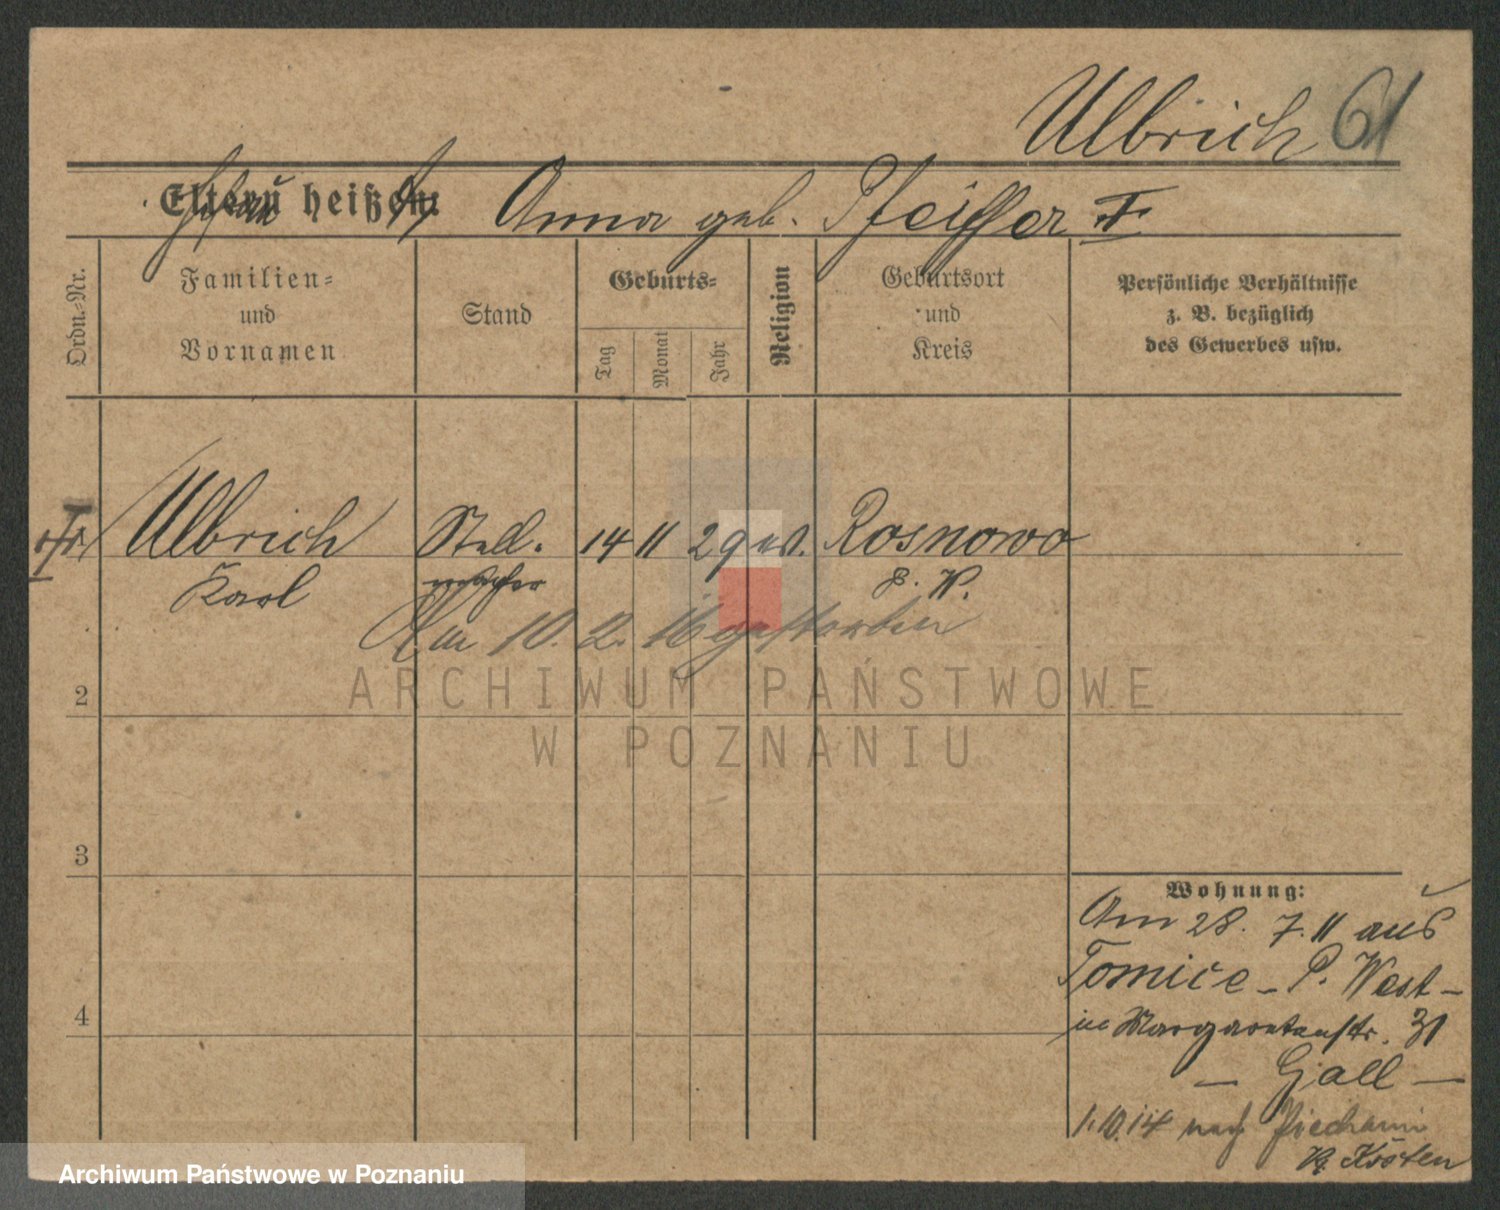 Ulbrich 61
Eltern heißen: Anna geb. Pfeiffer
Ordn.-Nr.
Familien-
und
Vornamen
Stand
Geburts-
Tag
Monat
Jahr
Religion
Geburtsort
und
Kreis
Persönliche Verhältnisse
z. B. bezüglich
des Gewerbes usw.
Ulbrich Stell. 14 11 29 ev. Rosnowo
Karl macher P. W.
Am 10. 2. 16 gestorben
2
ARCHIWUM PAŃSTWOWE
W POZNANIU
3
Wohnung:
Am 28. 7. 11 aus
Tomice - P. West -
in Margaretenstr. 31
— Gall —
4
1.10.14 nach Piechanin
Kr. Kosten
Archiwum Państwowe w Poznaniu